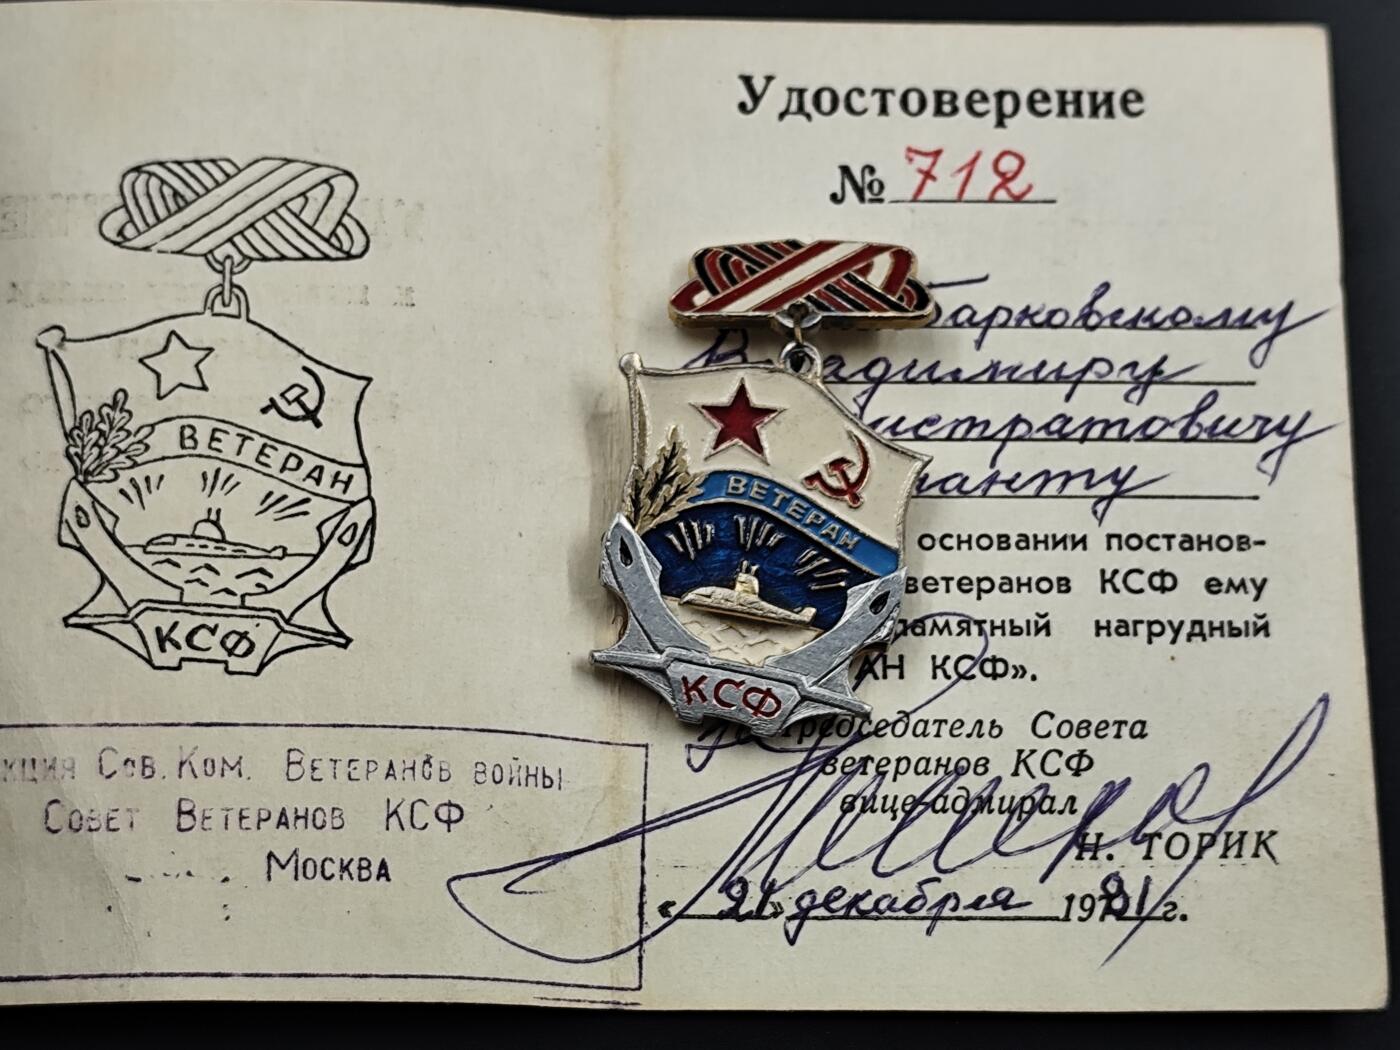 ВЕТЕРАН
КСФ
кция Сов. Ком. Ветеранов войны
Совет Ветеранов КСФ
Москва
Удостоверение
№ 712
Барковскому
Владимиру
истратовичу
анту
основании постанов-
ветеранов КСФ ему
памятный нагрудный
АН КСФ».
Председатель Совета
ветеранов КСФ
вице-адмирал
Н. ТОРИК
«21» декабря 1981 г.
ВЕТЕРАН
КСФ